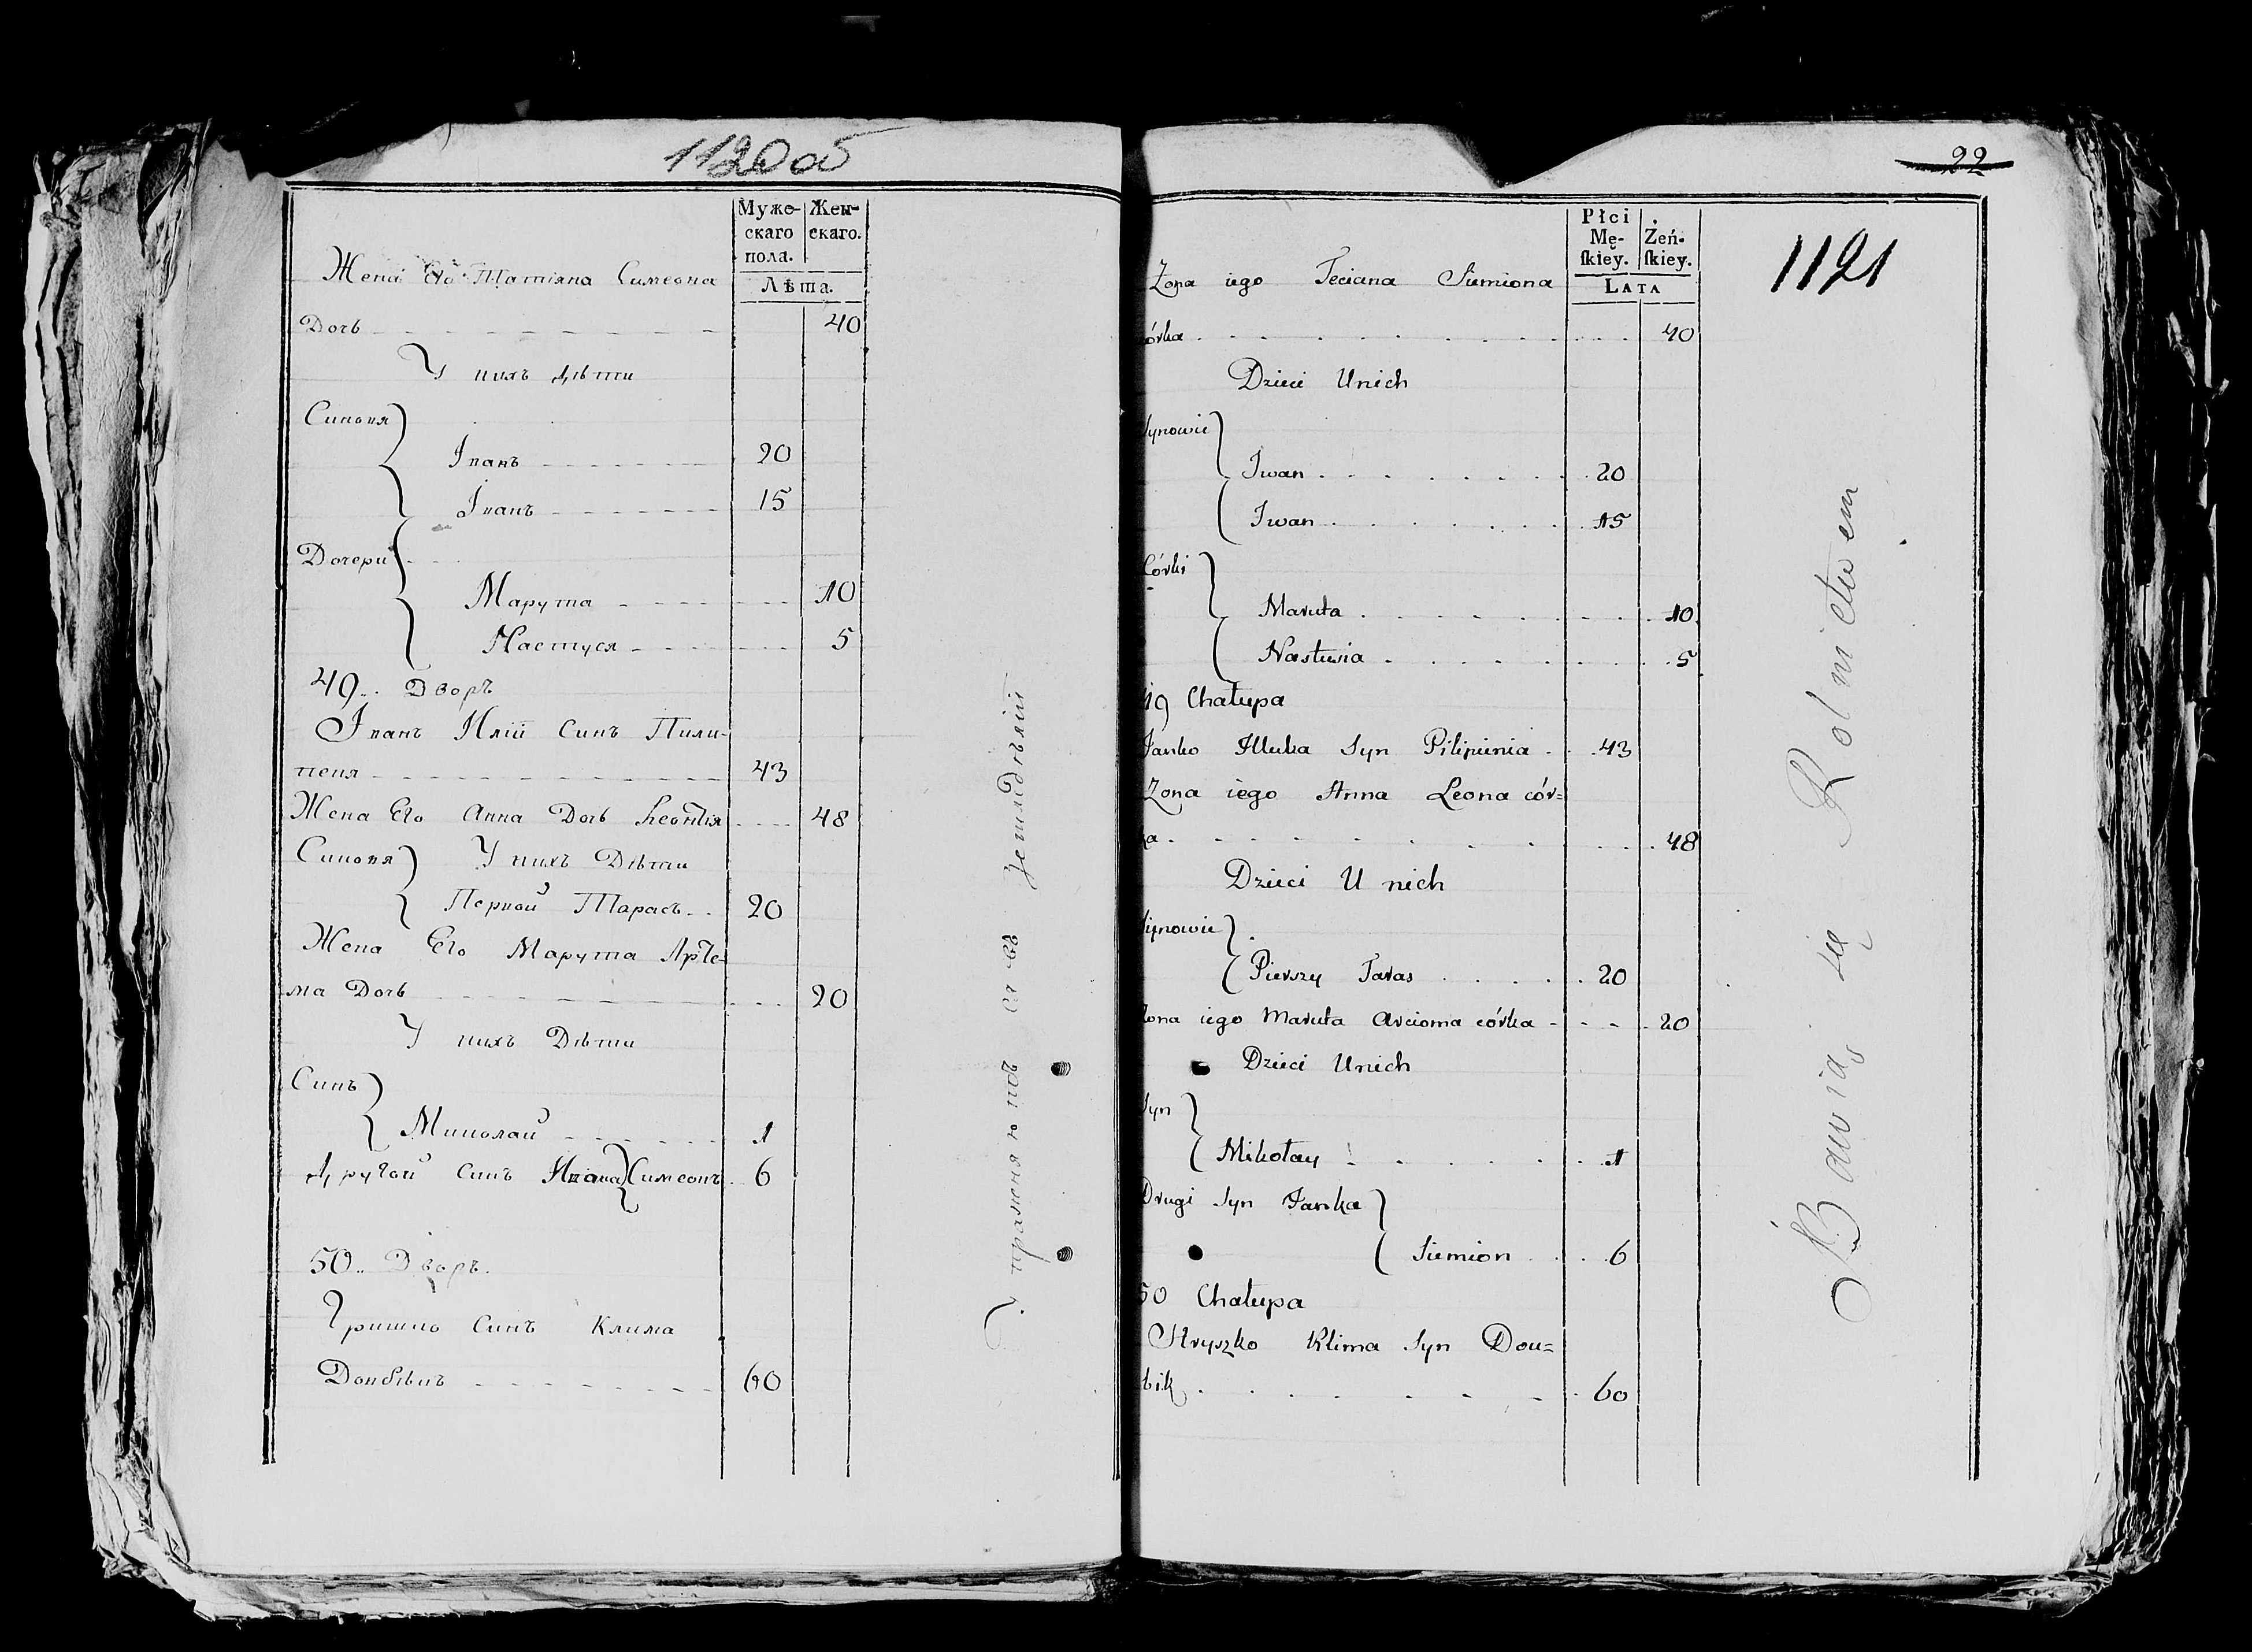 1120об
Муже- Жен-
скаго скаго.
пола.
Лѣта.
Жена Его Татіяна Симеона
Дочь 40
У нихъ дѣти
Синовя
Іванъ 20
Іванъ 15
Дочери
Марута 10
Настуся 5
49.. Дворъ
Іванъ Иліи Синъ Пили-
пеня 43
Жена Его Анна Дочь Леонтія 48
Синовя У нихъ Дѣти
Первой Тарасъ 20
Жена Его Марута Арте-
ма Дочь 20
У нихъ Дѣти
Синъ
Миколай 1
Другой Синъ Ивана Симеонъ 6
50.. Дворъ.
Гришко Синъ Клима
60
22
1121
Płci Żeń-
Mę- skiey.
skiey.
LATA
Zona iego Teciana Siemiona
córka 40
Dzieci Unich
Synowie
Iwan 20
Iwan 15
Córki
Maruta 10
Nastusia 5
49 Chałupa
Janko Illuka Syn Pilipienia 43
Zona iego Anna Leona cór=
ka 48
Dzieci U nich
Synowie
Pierszy Taras 20
Zona iego Maruta Arcioma córka 20
Dzieci Unich
Syn
Mikołay 1
Drugi Syn Janka
Siemion 6
50 Chałupa
Hryszko Klima Syn Dou=
bik 60
Bawią się Rolnictwem